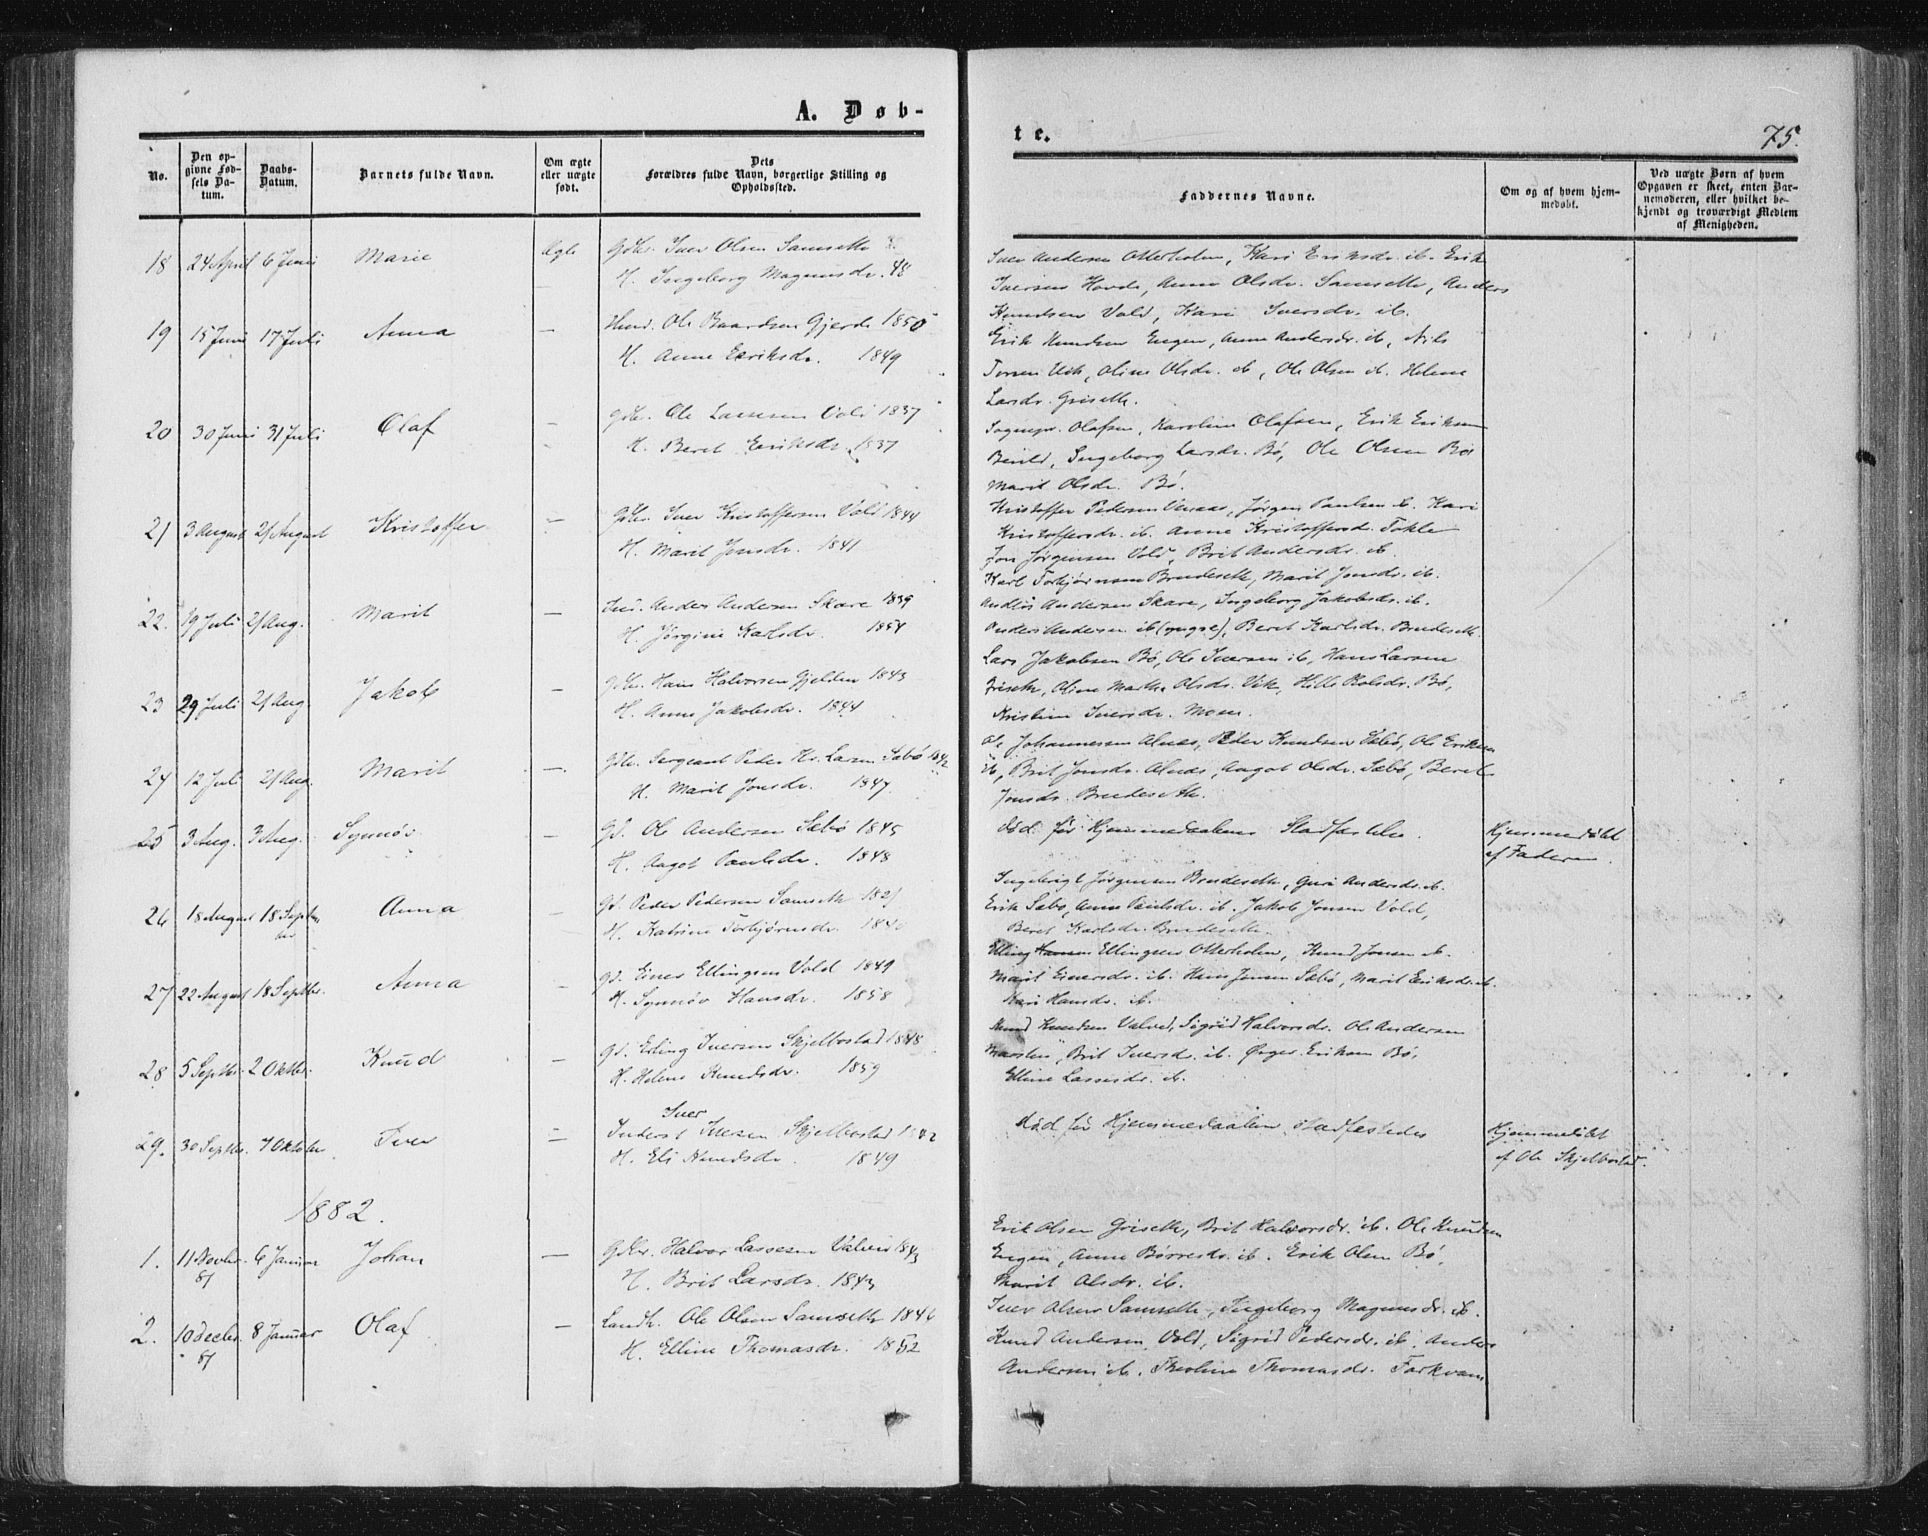 A. Døb-
te.
75.
No.
Den opgivne Fødsels Datum.
Daabs-Datum.
Barnets fulde Navn.
Om ægte eller uægte født.
Dets Forældres fulde Navn, borgerlige Stilling og Opholdssted.
Faddernes Navne.
Om og af hvem hjemmedøbt.
Ved uægte Børn af hvem Opgaven er skeet, enten Barnemoderen, eller hvilket bekjendt og troværdigt Medlem af Menigheden.
18 24 April 6 Juni Marie ægte Gbr. Iver Olsen Samseth
H. Ingeborg Magnusdr. 48
Iver Andersen Otterholm, Kari Eriksdr. ib. Erik
Iversen Hovde, Anne Olsdr. Samseth, Anders
Knudsen Vold, Kari Iversdr. ib.
19 15 Juni 17 Juli Anna — Ole Baardsen Gjerde 1850
H. Anne Eeriksdr. 1849
Erik Knudsen Engen, Anne Andersdr. ib, Nils
Vik, Oline Olsdr. ib, Ole Olsen ib. Helene
Larsdr. Griseth.
20 30 Juni 31 Juli Olaf — Gbr. Ole Lassesen Vold 1837
H. Beret Eeriksdr. 1837
Sognepr. Olafsen, Karoline Olafsen, Erik Eriksen
Ingeborg Larsdr. Bø, Ole Olsen Bø
Marit Olsdr. Bø.
21 3 August 21 August Kristoffer — Gbr. Iver Kristoffersen Vold 1844
H. Marit Jonsdr. 1841
Kristoffer Pedersen Unaas, Jørgen Paulsen ib. Kari
Kristoffersdr. ib. Anne Kristoffersd. Tokle
Jon Jørgensen Vold, Brit Andersdr. ib.
22. 19 Juli 21 Aug. Marit — Anders Andersen Skare 1839
H. Jørgine Karlsdr. 1854
Karl Torbjørnsen Brudeseth, Marit Jonsdr. ib.
Andreas Andersen Skare, Ingeborg Jakobsdr. ib.
Anders Andersen ib (yngre), Beret Karlsdr. Brudeseth
23 29 Juli 21 Aug. Jakob — Gbr. Hans Halvorsen Gjelden 1843
H. Anne Jakobsdr. 1844
Lars Jakobsen Bø, Ole Iversen ib, Hans Larsen
Griseth, Oline Marthe Olsdr. Vik, Olsdr. Bø,
Kristine Iversdr. Moen.
24 12 Juli 21 Aug. Marit — Gbr. Sergeant Peder Kr. Larsen Sæbø 1842
H. Marit Jonsdr. 1847
Ole Johannessen Alnæs, Peder Knudsen Sæbø, Ole Eriksen
ib, Brit Jonsdr. Alnæs, Aagot Olsdr. Sæbø, Beret
Jonsdr. Brudeseth.
25 3 Aug. 3 Aug. Synnøv — Gd. Ole Andersen Sæbø 1845
H. Aagot Paulsdr. 1848
død før Hjemmedaabens Stadfæstelse.
Hjemmedøbt
af Faderen.
26 18 August 18 Septbr Anna — Gd. Peder Pedersen Samseth 1821
H. Katrine Torbjørnsdr. 1840
Ingebrigt Jørgensen Brudeseth, Guri Andersdr. ib.
Erik Sæbø, Anne Paulsdr. ib. Jakob Jonsen Vold,
Beret Karlsdr. Brudeseth.
27 22 August 18 Septbr. Anna — Gd. Einer Ellingsen Vold 1849
H. Synnøv Hansdr. 1858
Elling Ellingsen Otterholm, Knud Jonsen ib.
Marit Einersdr. ib. Hans Jonsen Sæbø, Marit Eriksdr. ib.
Kari Hansdr. ib.
28 5 Septbr. 2 Oktbr. Knud — Gd. Erling Iversen Skjelbostad 1848
H. Helene Knudsdr. 1859
Knud Knudsen Valved, Sigrid Halvorsdr. Ole Andersen
Brit Iversdr. ib. Eriksen Bø,
Elline Lassesdr. ib.
29. 30 Septbr. 7 Oktober Iver — Inderst Iver Iversen Skjelbostad 1842
H. Eli Knudsdr. 1849
død før Hjemmedaaben stadfæstedes
Hjemmedøbt
af Ole Skjelbostad.
1882.
1. 11 Novbr. 81 6 Januar Johan — Gbr. Halvor Lassesen Valved 1843
H. Brit Larsdr. 1843
Erik Olsen Griseth, Brit Halvorsdr. ib. Ole Knudsen
Engen, Anne Børresdr. ib. Erik Olsen Bø,
Marit Olsdr. ib.
2. 10 Decbr. 81 8 Januar Olaf — Landh. Ole Olsen Samseth 1846
H. Elline Thomasdr. 1852
Iver Olsen Samseth, Ingeborg Magnusdr. ib.
Knud Andersen Vold, Sigrid Pedersdr. ib. Anders
Andersen ib. Theoline Thomasdr. Torkvam